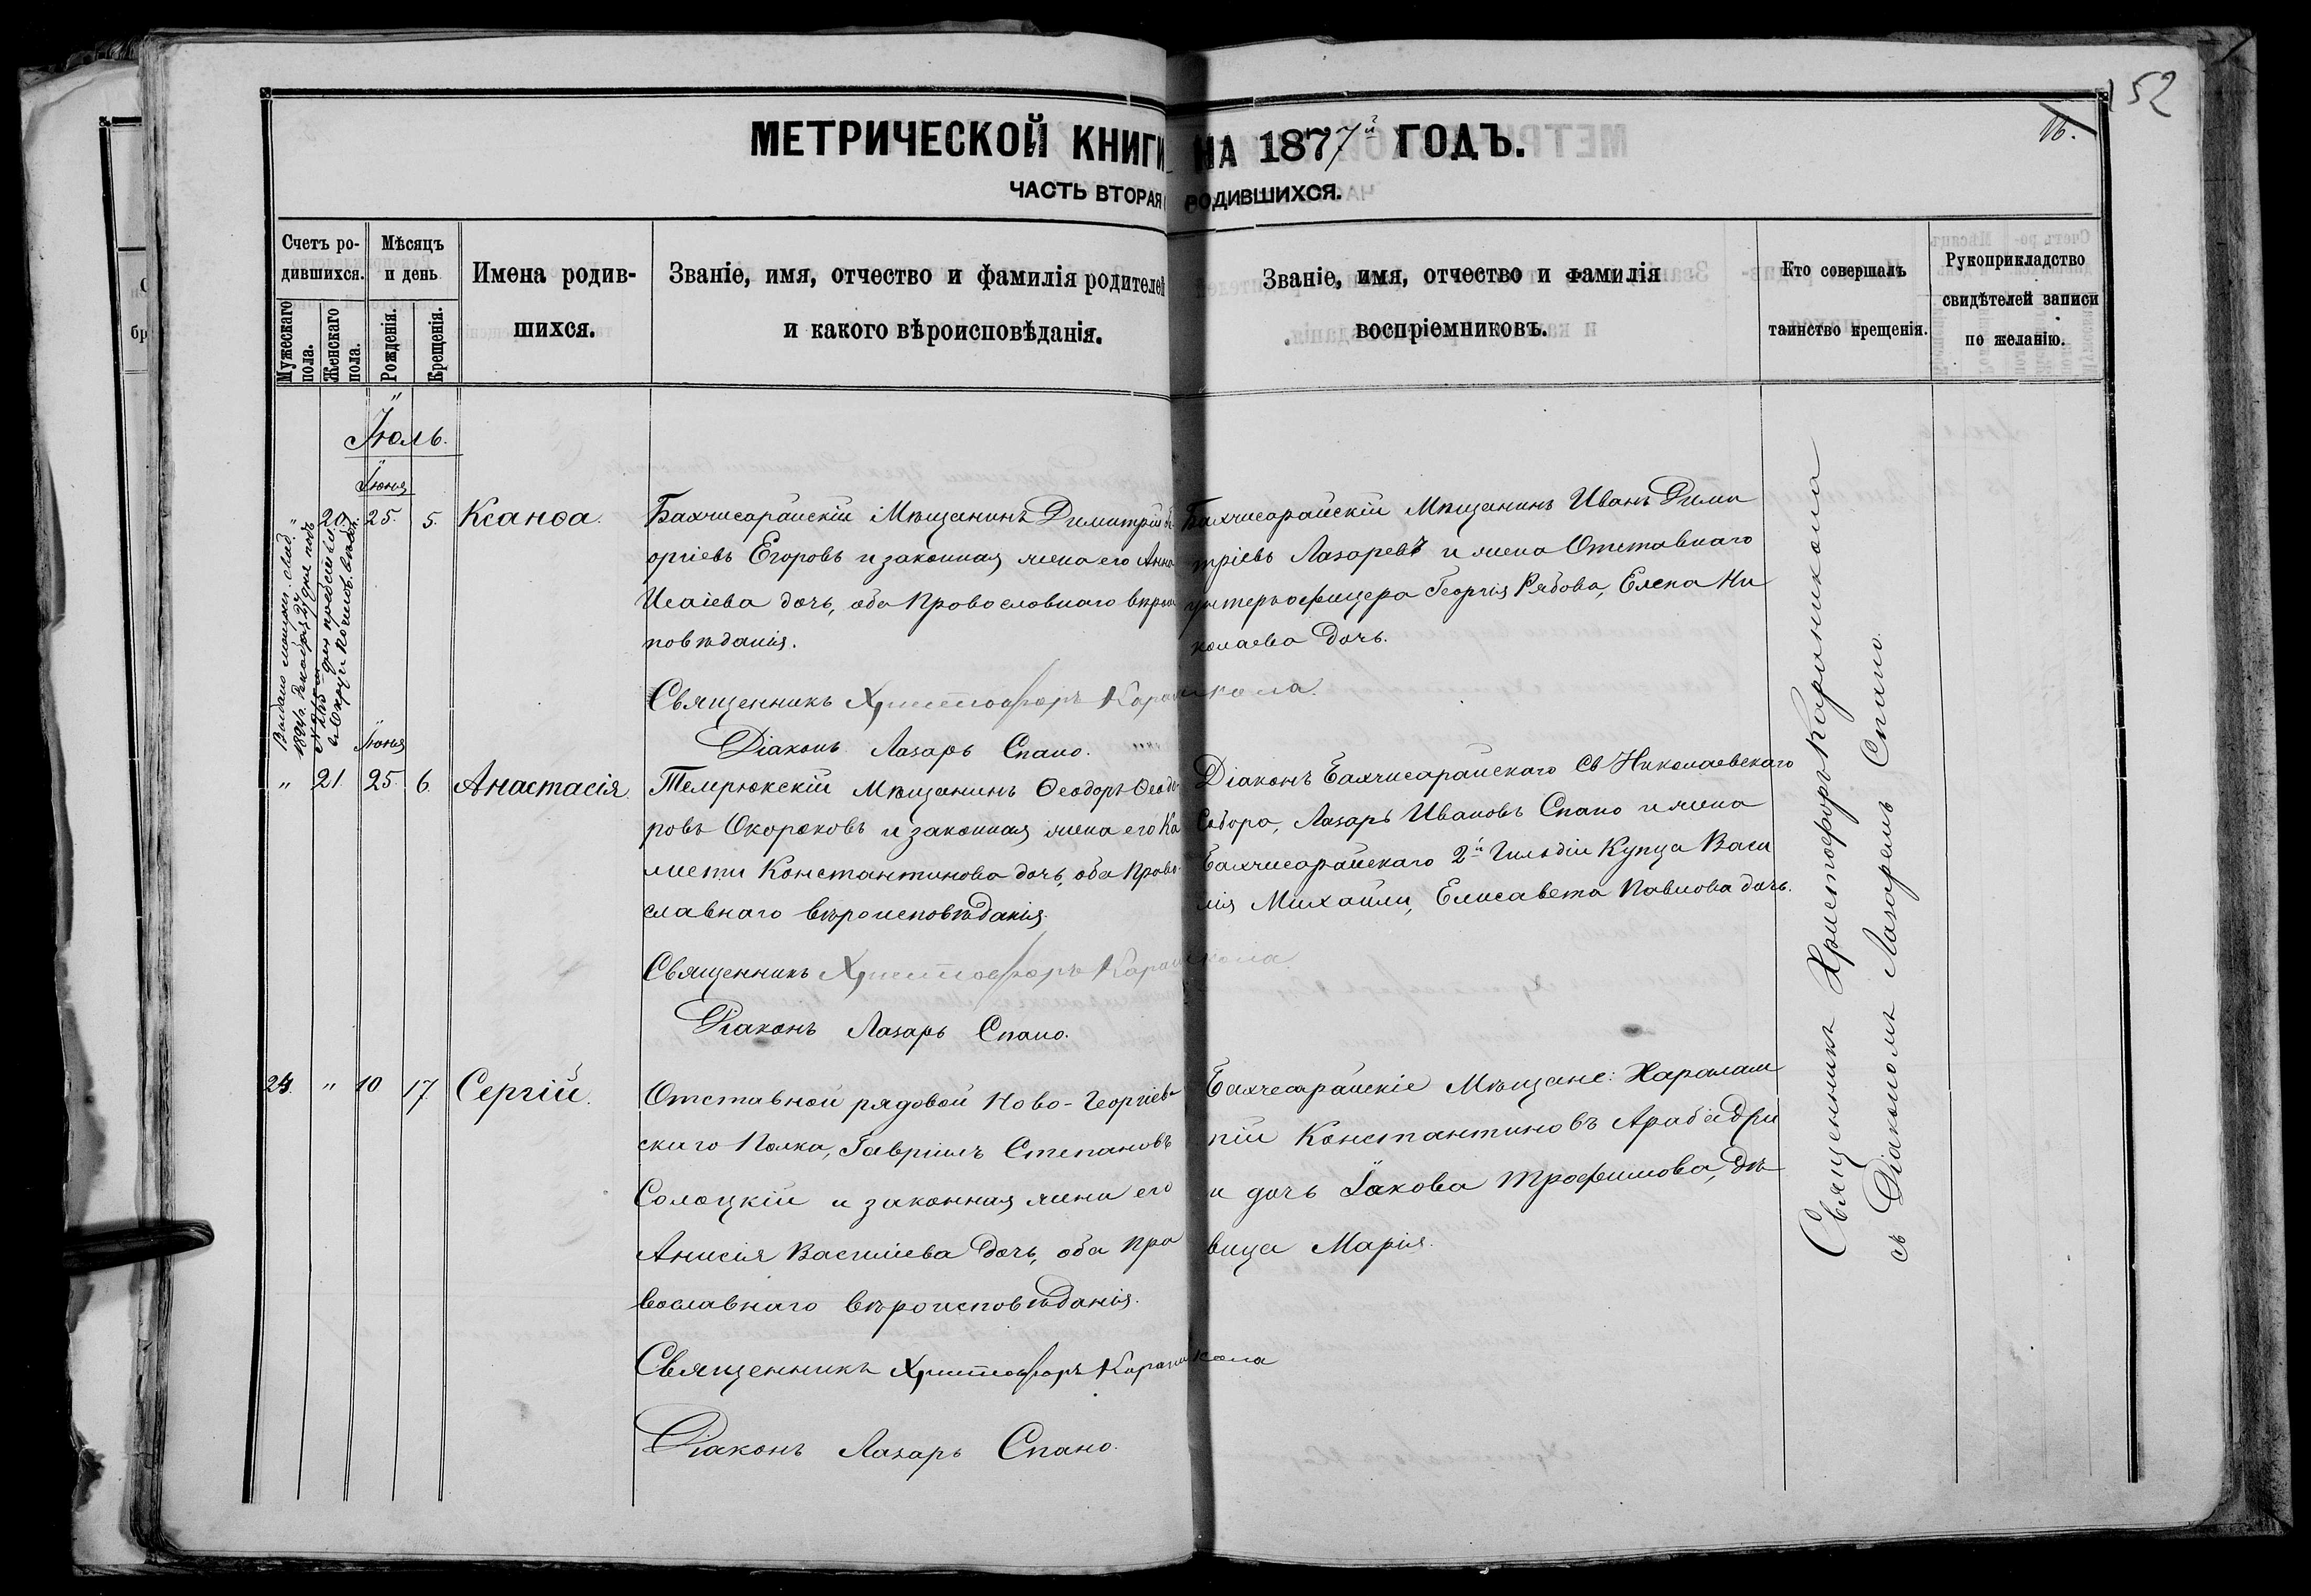 52
16.
МЕТРИЧЕСКОЙ КНИГИ НА 1877й ГОДЪ.
ЧАСТЬ ВТОРАЯ РОДИВШИХСЯ.
Счетъ ро-
дившихся.
Мужескаго
пола.
Женскаго
пола.
Мѣсяцъ
и день
Рожденія.
Крещенія.
Имена родив-
шихся.
Званіе, имя, отчество и фамилія родителей
и какого вѣроисповѣданія.
Званіе, имя, отчество и фамилія
воспріемниковъ.
Кто совершалъ
таинство крещенія.
Рукоприкладство
свидѣтелей записи
по желанію.
Іюль.
Іюня
" 20. 25. 5. Ксанѳа.
Бахчисарайскій Мѣщанинъ Димитрій Ге
оргіевъ Егоровъ и законная жена его Анна
Исаіева дочь, оба Православнаго вѣроис
повѣданія.
Священникъ Христофоръ Караникола.
Діаконъ Лазарь Спано.
Бахчисарайскій Мѣщанинъ Иванъ Дими
тріевъ Лазаревъ и жена Отставнаго
унтерофицера Георгія Рябова, Елена Ни
колаева дочь.
Іюня
" 21. 25. 6. Анастасія.
Темрюкскій Мѣщанинъ Ѳеодоръ Ѳеодо-
ровъ Окороковъ и законная жена его Ка
листи Константинова дочь, оба Право-
славнаго вѣроисповѣданія.
Священникъ Христофоръ Караникола
Діаконъ Лазарь Спано.
Діаконъ Бахчисарайскаго Св Николаевскаго
Собора, Лазарь Ивановъ Спано и жена
Бахчисарайскаго 2й Гильдіи Купца Васи
лія Михайли, Елисавета Павлова дочь.
24. " 10 17. Сергій.
Отставной рядовой Ново-Георгіев-
скаго Полка, Гавріилъ Степановъ
Солоцкій и законная жена его
Анисія Василіева дочь, оба Пра
вославнаго вѣроисповѣданія.
Священникъ Христофоръ Караникола
Діаконъ Лазарь Спано.
Бахчесарайскіе Мѣщане: Харалам
пій Константиновъ Арабаджи
и дочь Іакова Трофимова, дѣ
вица Марія.
Священникъ Христофоръ Караникола
съ Діакономъ Лазаремъ Спано.